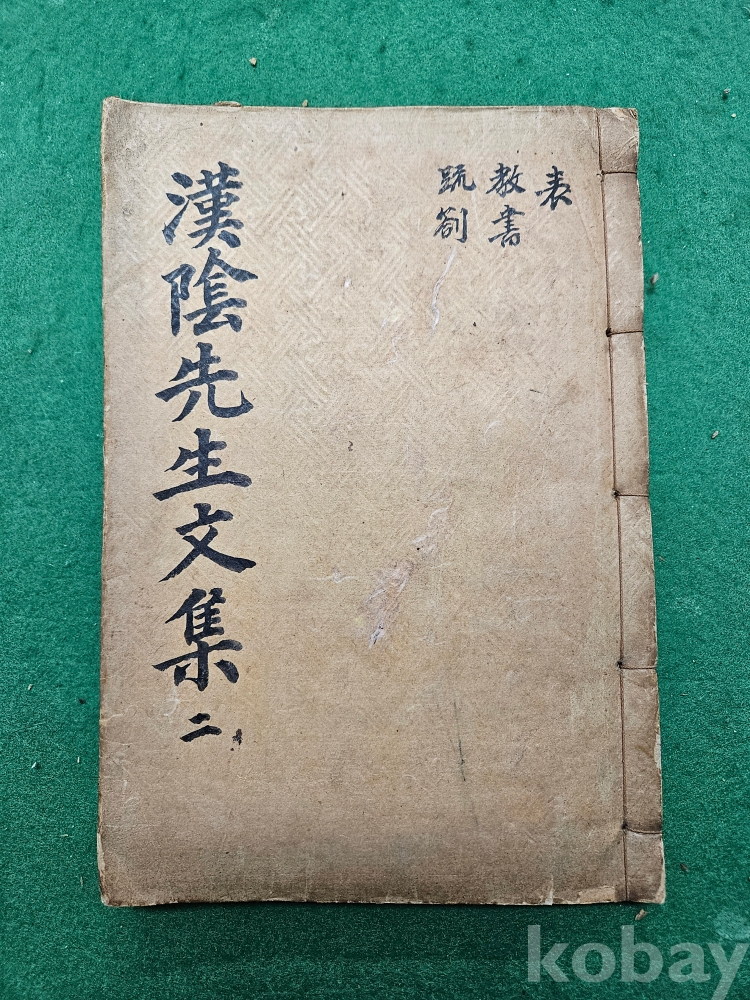 表
教書
䟽劄
漢陰先生文集 二
kobay